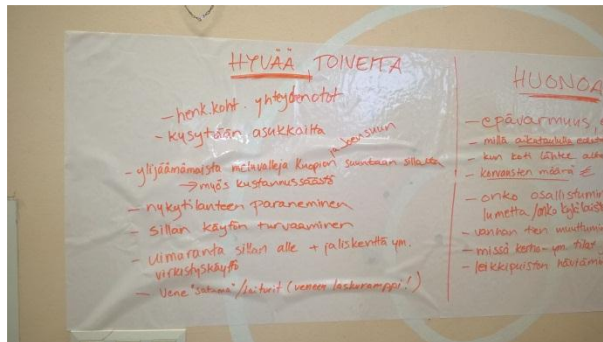 HYVÄÄ TOIVEITA
- henk.koht. yhteydenotot
- kysytään asukkailta
ja Joensuun
- ylijäämämaista meluvalleja Kuopion suuntaan sillalta
→ myös kustannussäästö
- nykytilanteen paraneminen
- sillan käytön turvaaminen
- Uimaranta sillan alle + jaliskenttä ym.
virkistyskäyttö
- Vene"satama"/laiturit (veneen laskuramppi!)
HUONOA
- epävarmuus,
- millä aikataululla
- kun koti lähtee
- kerrosten määrä €
- onko osallistumin
lumetta/onko
- vanhan tien muuttumin
- missä kerho- ym. tilat
- leikkipuiston häviämin